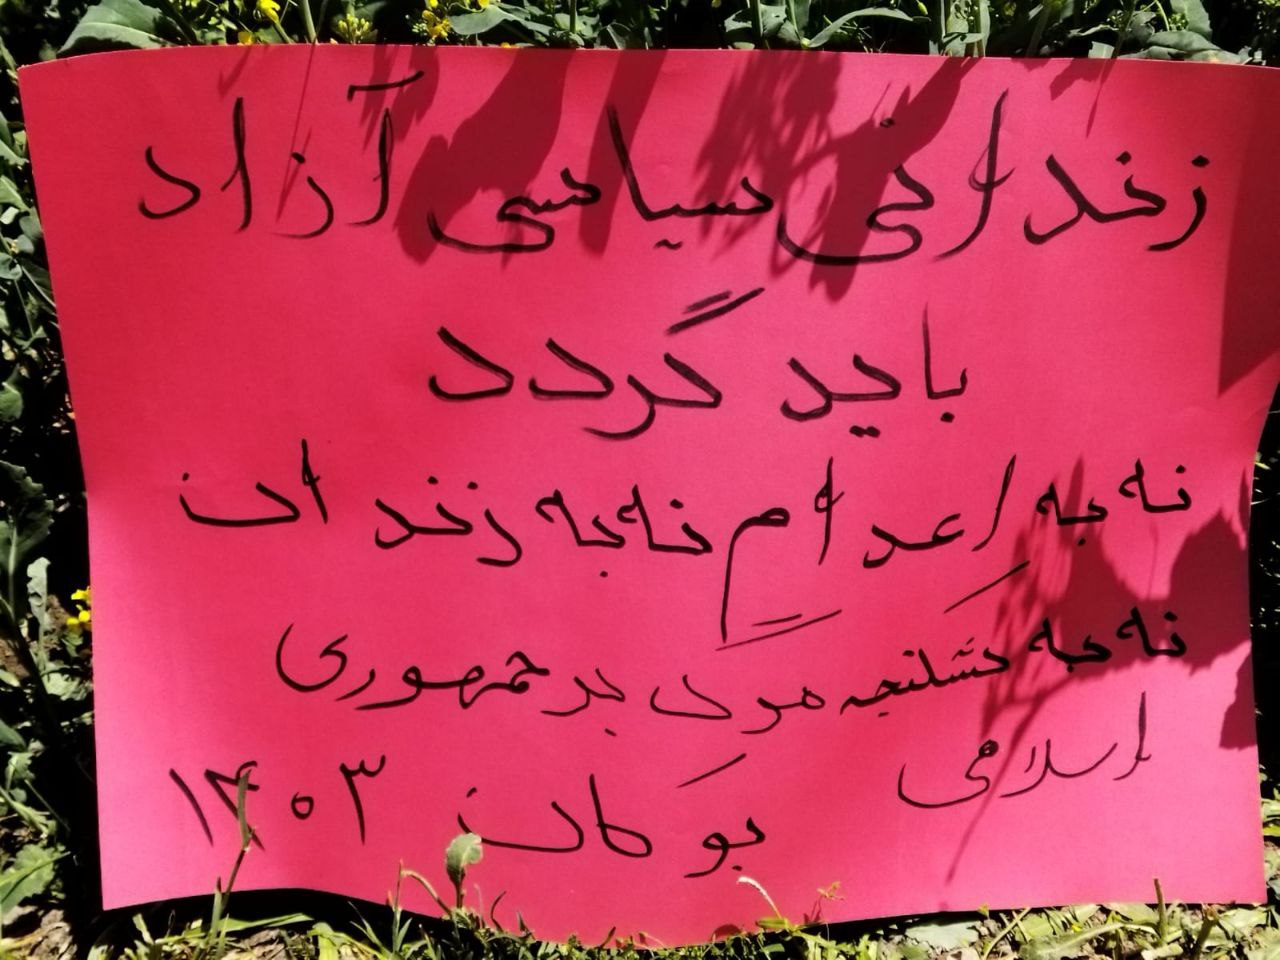 زندانی سیاسی آزاد
باید گردد
نه به اعدام نه به زندان
نه به شکنجه مرگ بر جمهوری
اسلامی
بوکان ۱۴۰۳